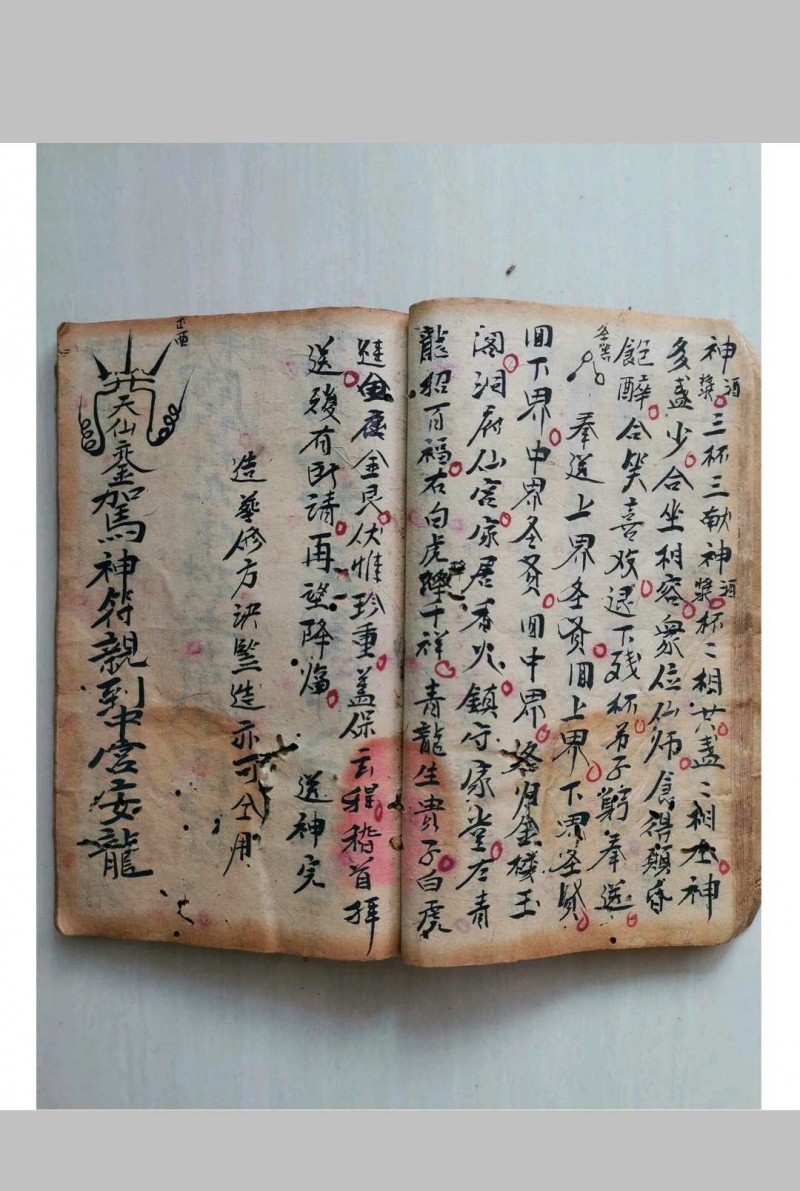 神漿酒三杯三献神漿酒杯〻相共盞〻相 神
多盞少合坐相容衆位仙师食得顛昏
飽醉合笑喜欢退下残杯弟子躬奉送
奉送上界圣贤回上界下界圣贤
回下界中界圣贤回中界各归金楼玉
阁洞府仙宫家居香火鎮守家堂左青
龍招百福右白虎 千祥青龍生貴子白虎
伏惟珍重盖保云程稽首拜
送後有所請再望降臨 送神完
造 修方 竪造亦可全用
天仙 駕神符親到中宮安龍